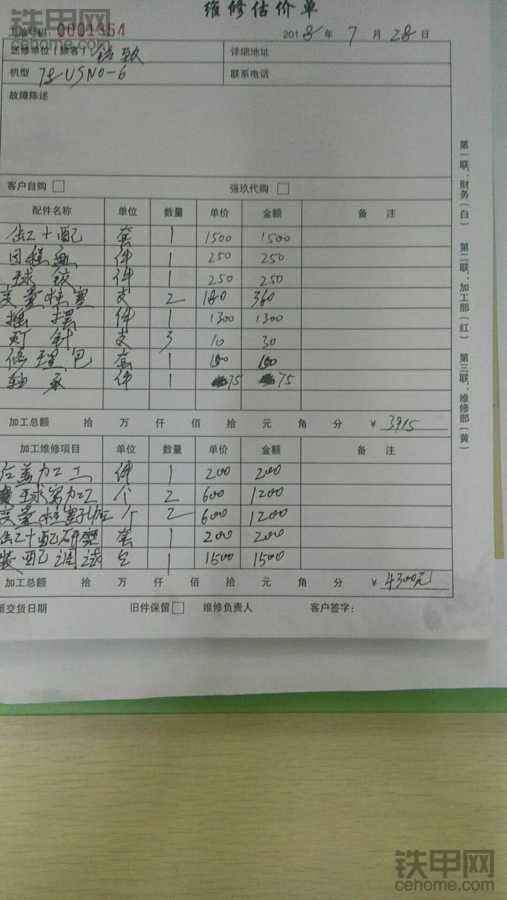 维修估价单
0001354 2018年7月28日
详细地址
机型 联系电话
故障陈述
客户自购 强玖代购
配件名称 单位 数量 单价 金额 备注
缸+配 套 1 1500 1500
回程盘 件 1 250 250
球铰 件 1 250 250
变量柱塞 支 2 180 360
摇摆 件 1 1300 1300
顶针 支 3 10 30
修理包 套 1
轴承 件 1 75 75
加工总额 拾 万 仟 佰 拾 元 角 分 ¥ 3915
加工维修项目 单位 数量 单价 金额 备注
后盖加工 件 1 200 200
个 2 600 1200
变量柱塞 个 2 600 1200
缸+配研磨 套 1 200 200
装配调试 台 1 1500 1500
加工总额 拾 万 仟 佰 拾 元 角 分 ¥ 4300元
交货日期 旧件保留 维修负责人 客户签字:
第一联:财务(白) 第二联:加工部(红) 第三联:维修部(黄)
铁甲网
cehome.com
铁甲网
cehome.com